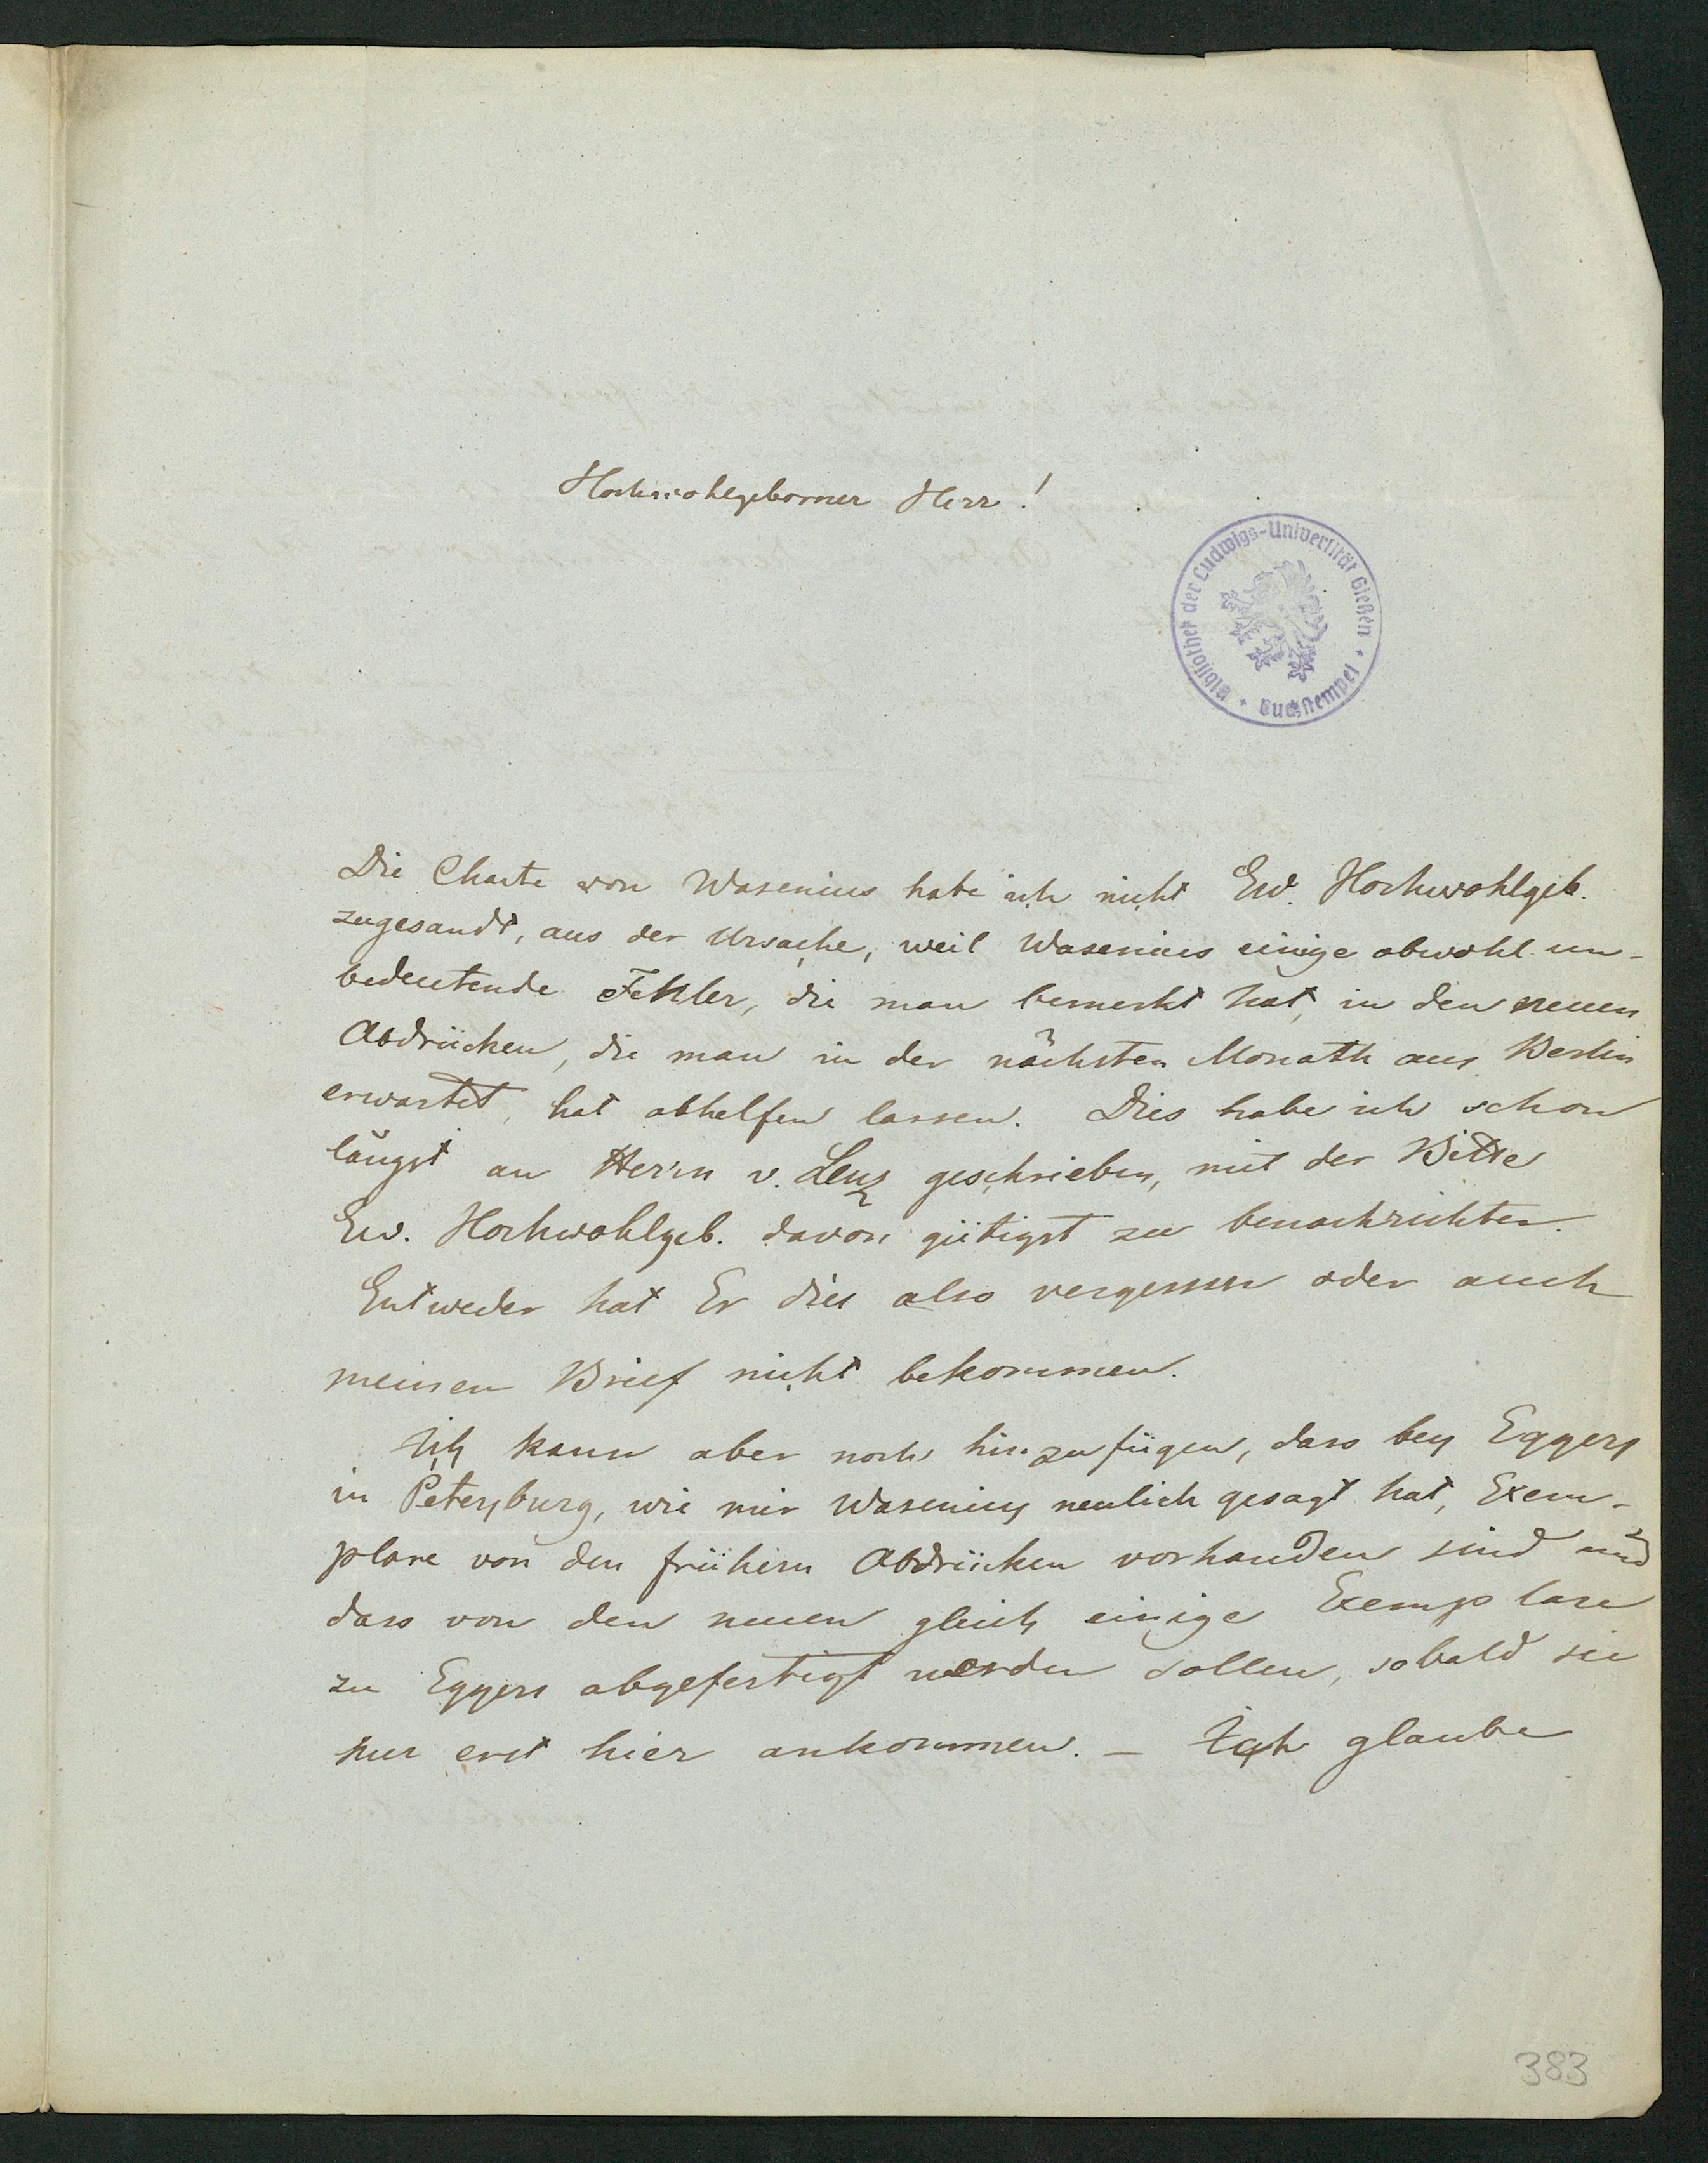 Hochwohlgeborner Herr!
Bibliothek der Ludwigs-Universität Gießen * Buchstempel *
Die Charte von Wasenius habe ich nicht Ew. Hochwohlgeb.
zugesandt, aus der Ursache, weil Wasenius einige obwohl un-
bedeutende Fehler, die man bemerkt hat, in den neuen
Abdrücken, die man in der nächsten Monath aus Berlin
erwartet, hat abhelfen lassen. Dies habe ich schon
längst an Herrn v. Lenz geschrieben, mit der Bitte
Ew. Hochwohlgeb. davon gütigst zu benachrichten.
Entweder hat Er dies also vergessen oder auch
meinen Brief nicht bekommen.
Ich kann aber noch hinzufügen, dass bey Eggers
in Petersburg, wie mir Wasenius neulich gesagt hat, Exem-
plare von den frühern Abdrücken vorhanden sind und
dass von den neuen gleich einige Exemplare
zu Eggers abgefertigt werden sollen, sobald sie
nur erst hier ankommen. – Ich glaube
383